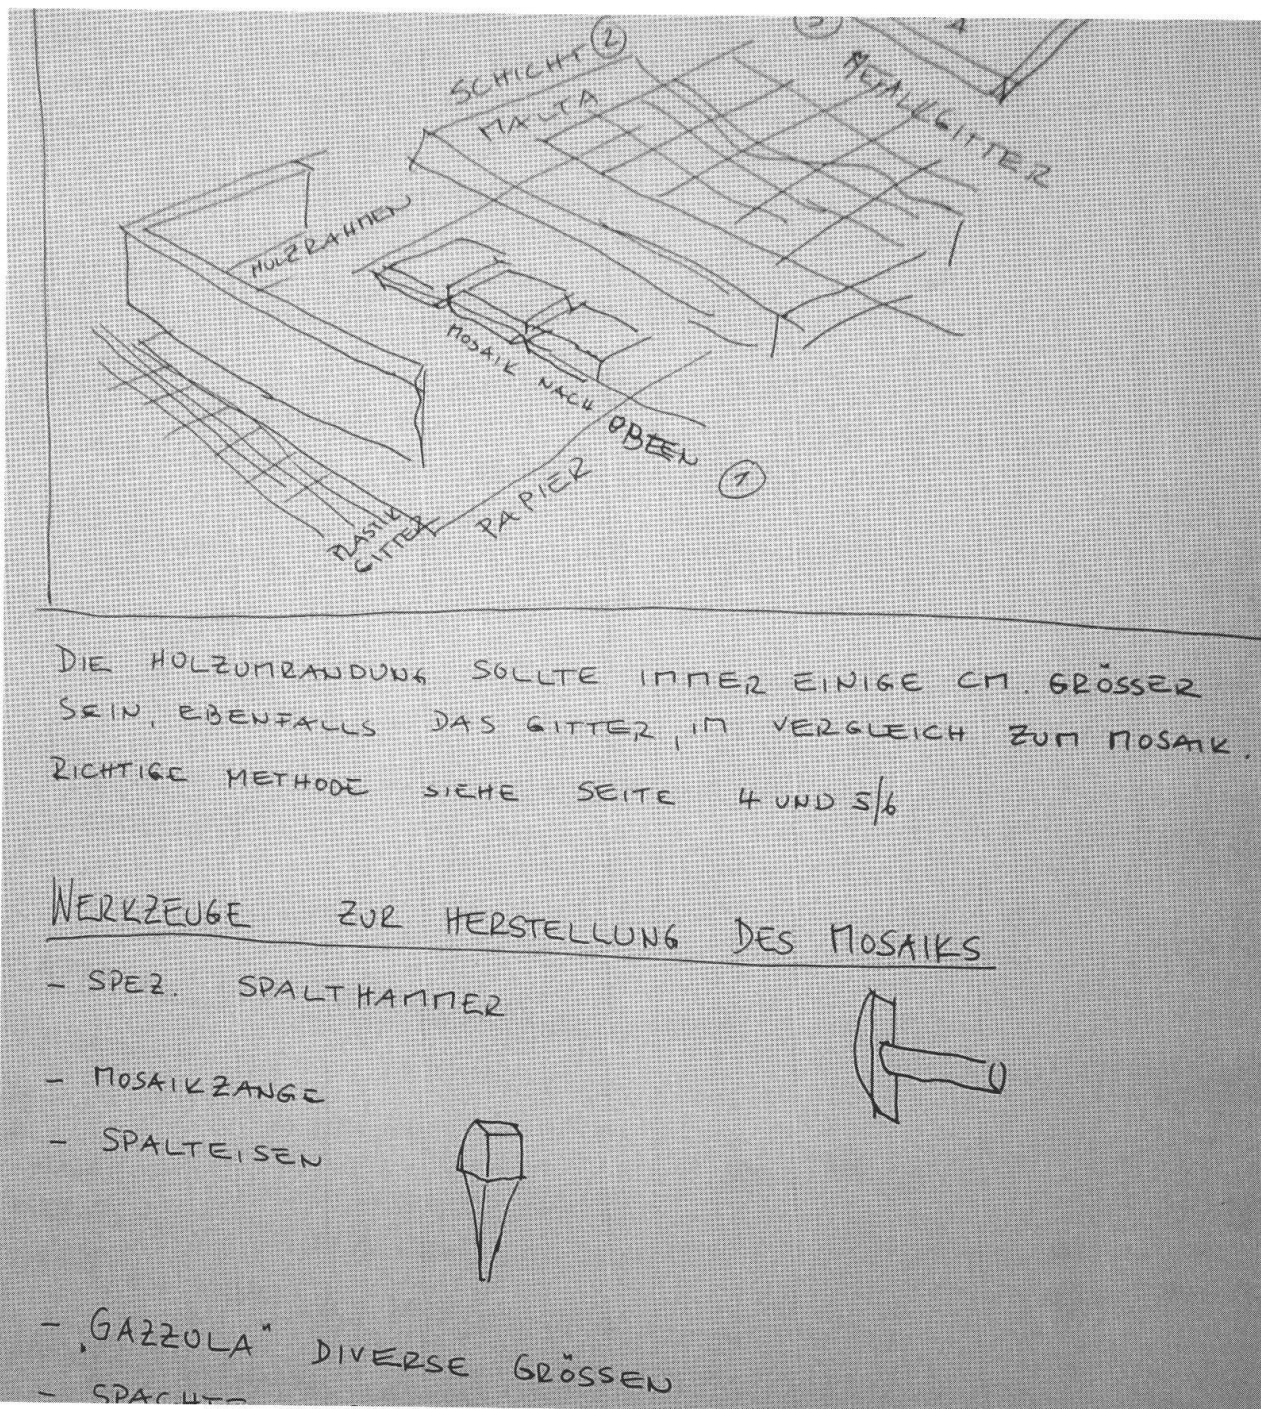 3
4
SCHICHT 2
MALTA
METALLGITTER
HOLZRAHMEN
MOSAIK NACH OBEN 1
PAPIER
PLASTIK
GITTER
DIE HOLZUMRANDUNG SOLLTE IMMER EINIGE CM. GRÖSSER
SEIN, EBENFALLS DAS GITTER, IM VERGLEICH ZUM MOSAIK.
RICHTIGE METHODE SIEHE SEITE 4 UND 5/6
WERKZEUGE ZUR HERSTELLUNG DES MOSAIKS
- SPEZ. SPALTHAMMER
- MOSAIKZANGE
- SPALTEISEN
- „GAZZOLA" DIVERSE GRÖSSEN